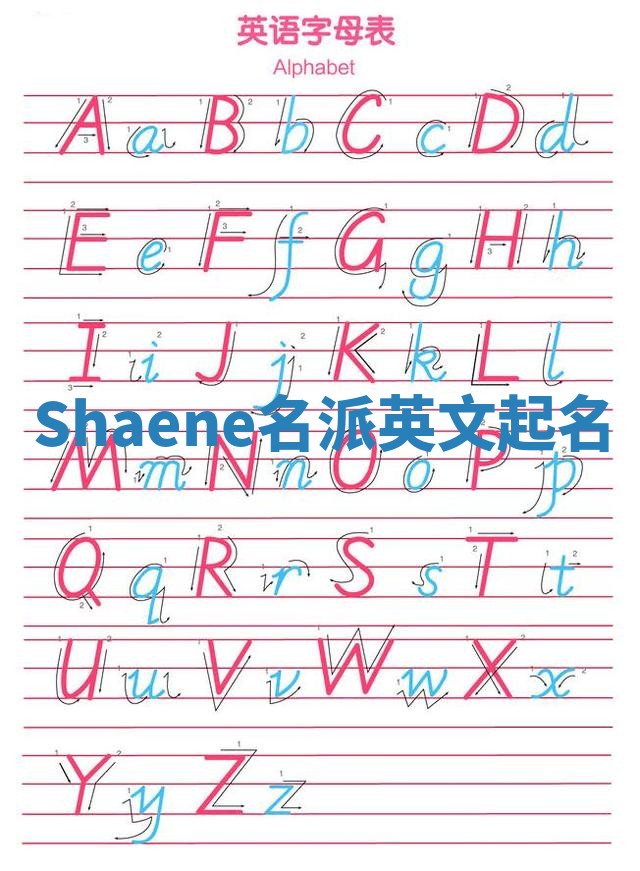 英语字母表
Alphabet
A a B b C c D d
E e F f G g H h
I i J j K k L l
Shaene名派英文起名
M m N n O o P p
Q q R r S s T t
U u V v W w X x
Y y Z z